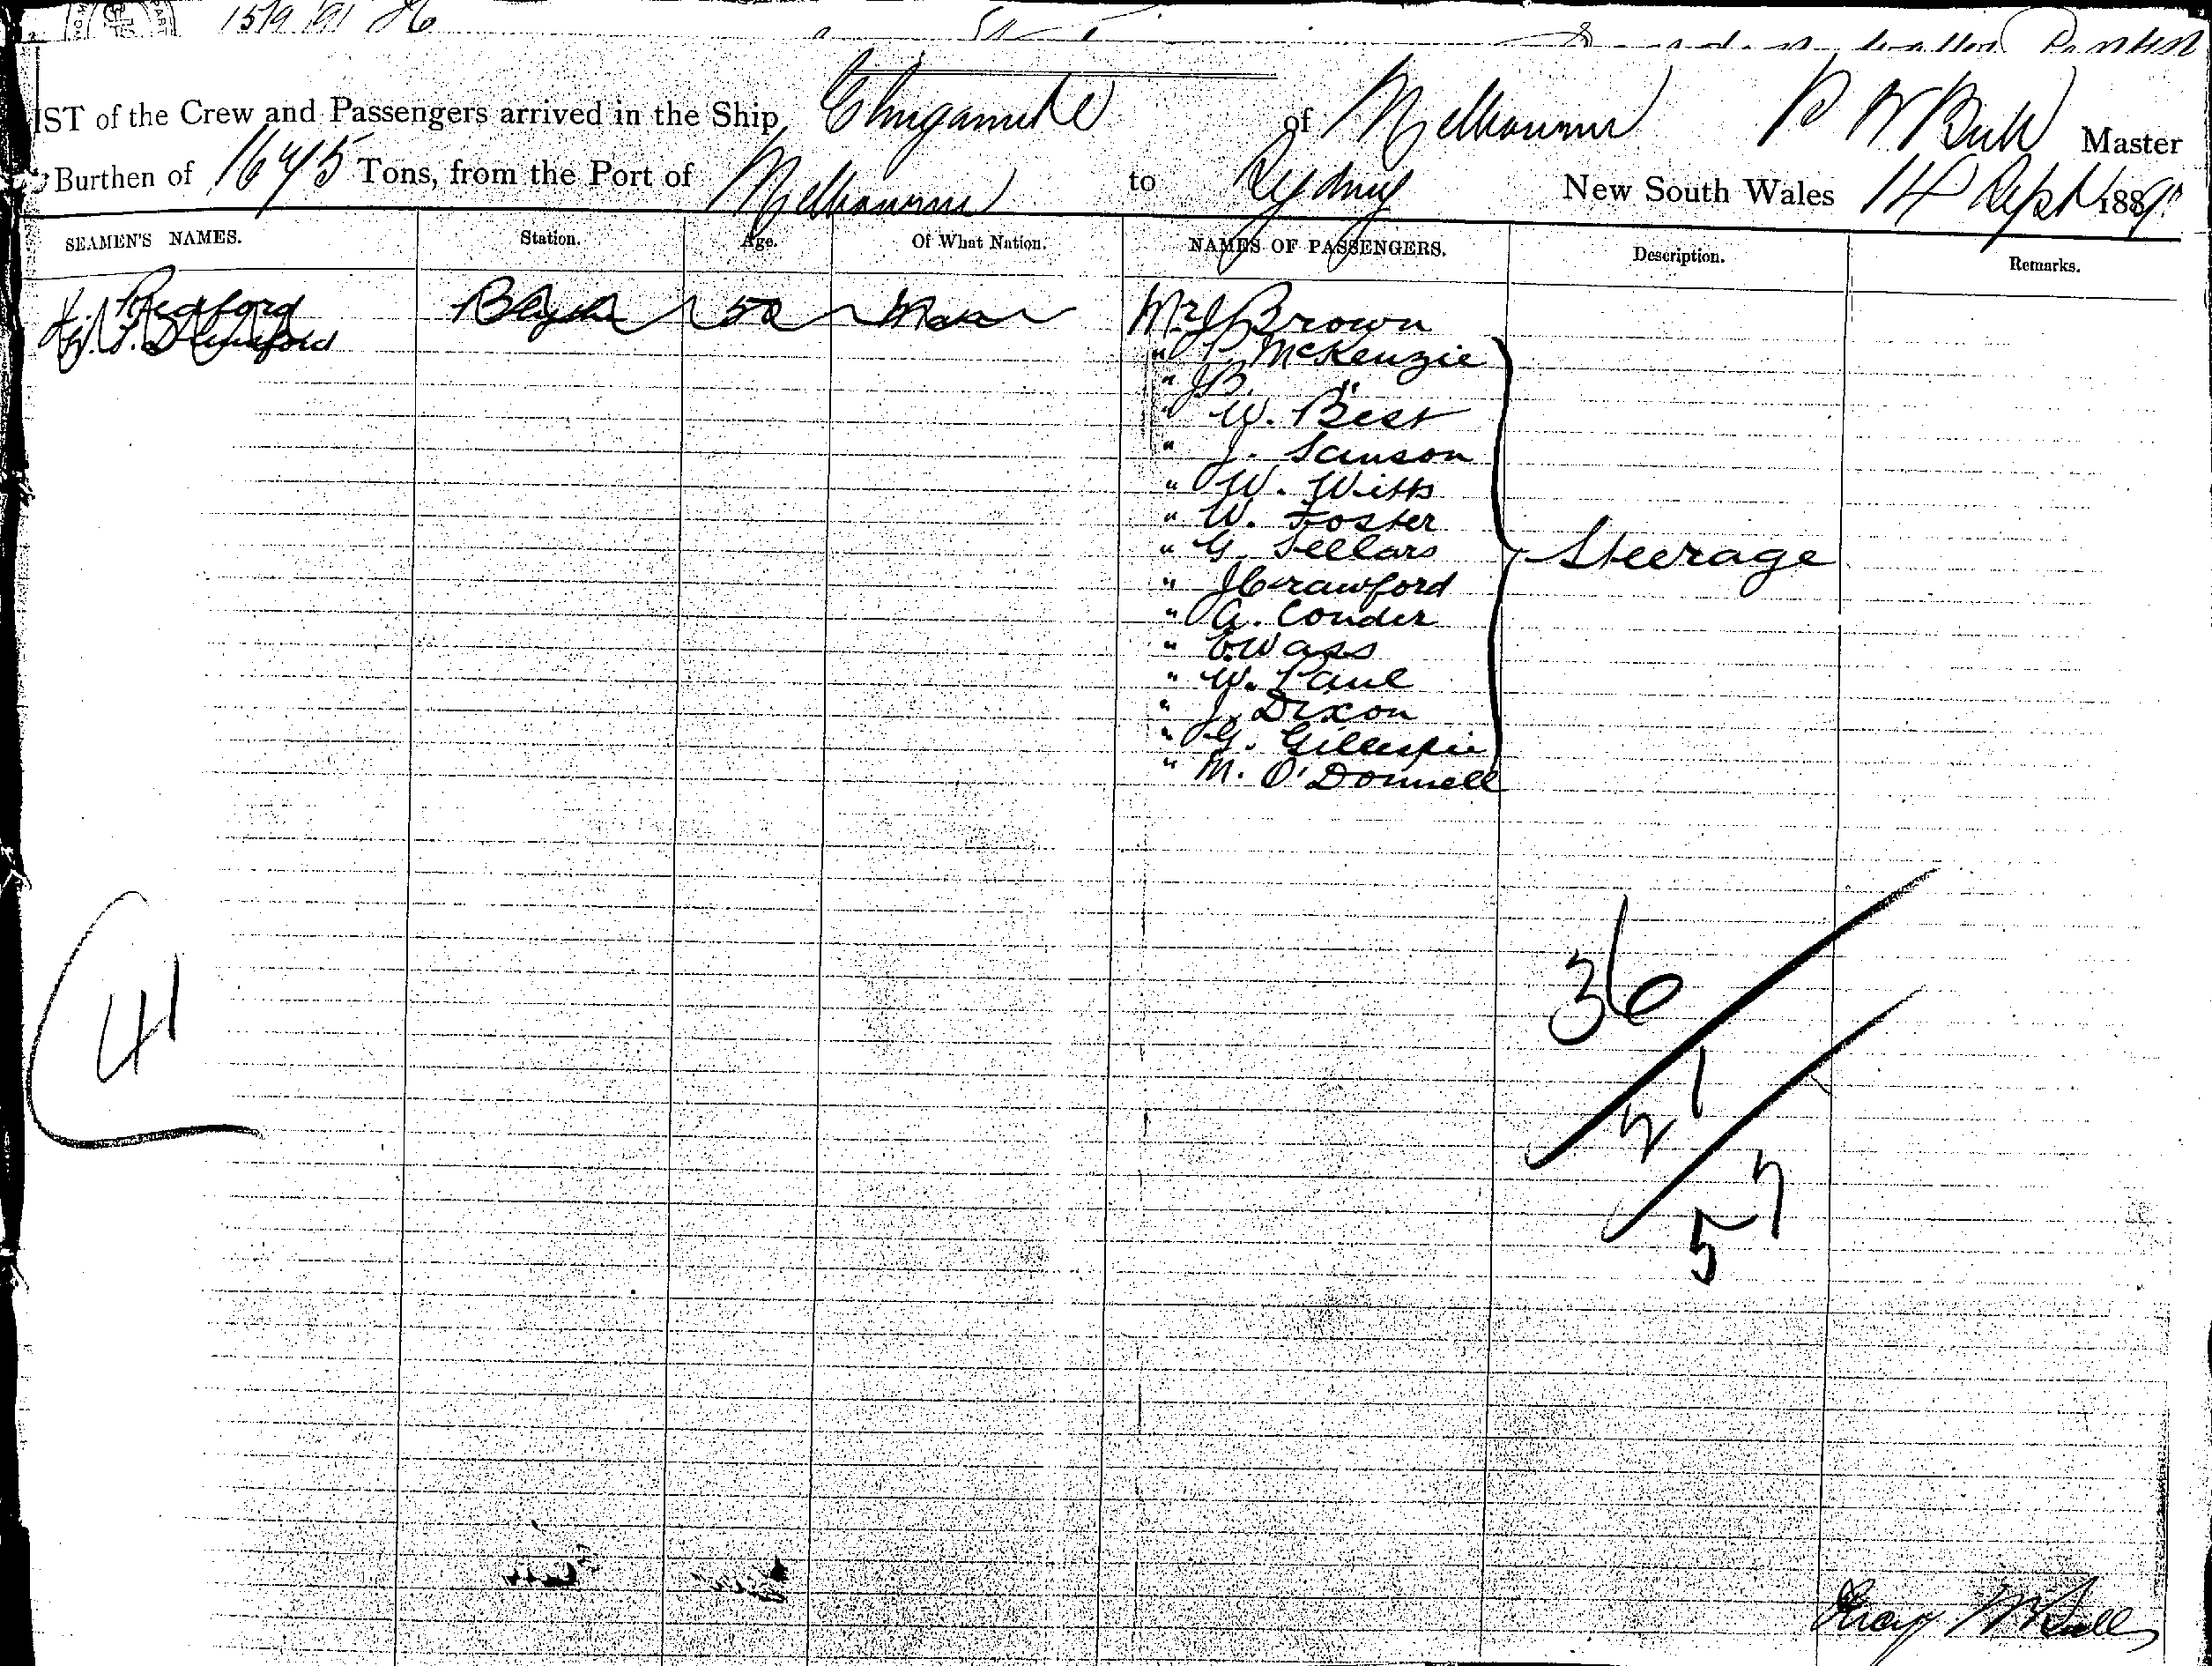 15/9/91
IST of the Crew and Passengers arrived in the Ship Elingamite of Melbourne Master
Burthen of 1675 Tons, from the Port of Melbourne to Sydney New South Wales 14 Sept 1891
SEAMEN'S NAMES. Station. Age. Of What Nation. NAMES OF PASSENGERS. Description. Remarks.
Mr J Brown
" P McKenzie
" J B. "
" W. Best
" J. Samson
" W. Witts
" W. Foster
" G. Sellars
" J Crawford
" A. Conder
" E Wass
" W. Paul
" J. Dixon
" G. Gillespie
" M. O'Donnell
Steerage
41
36
21
57